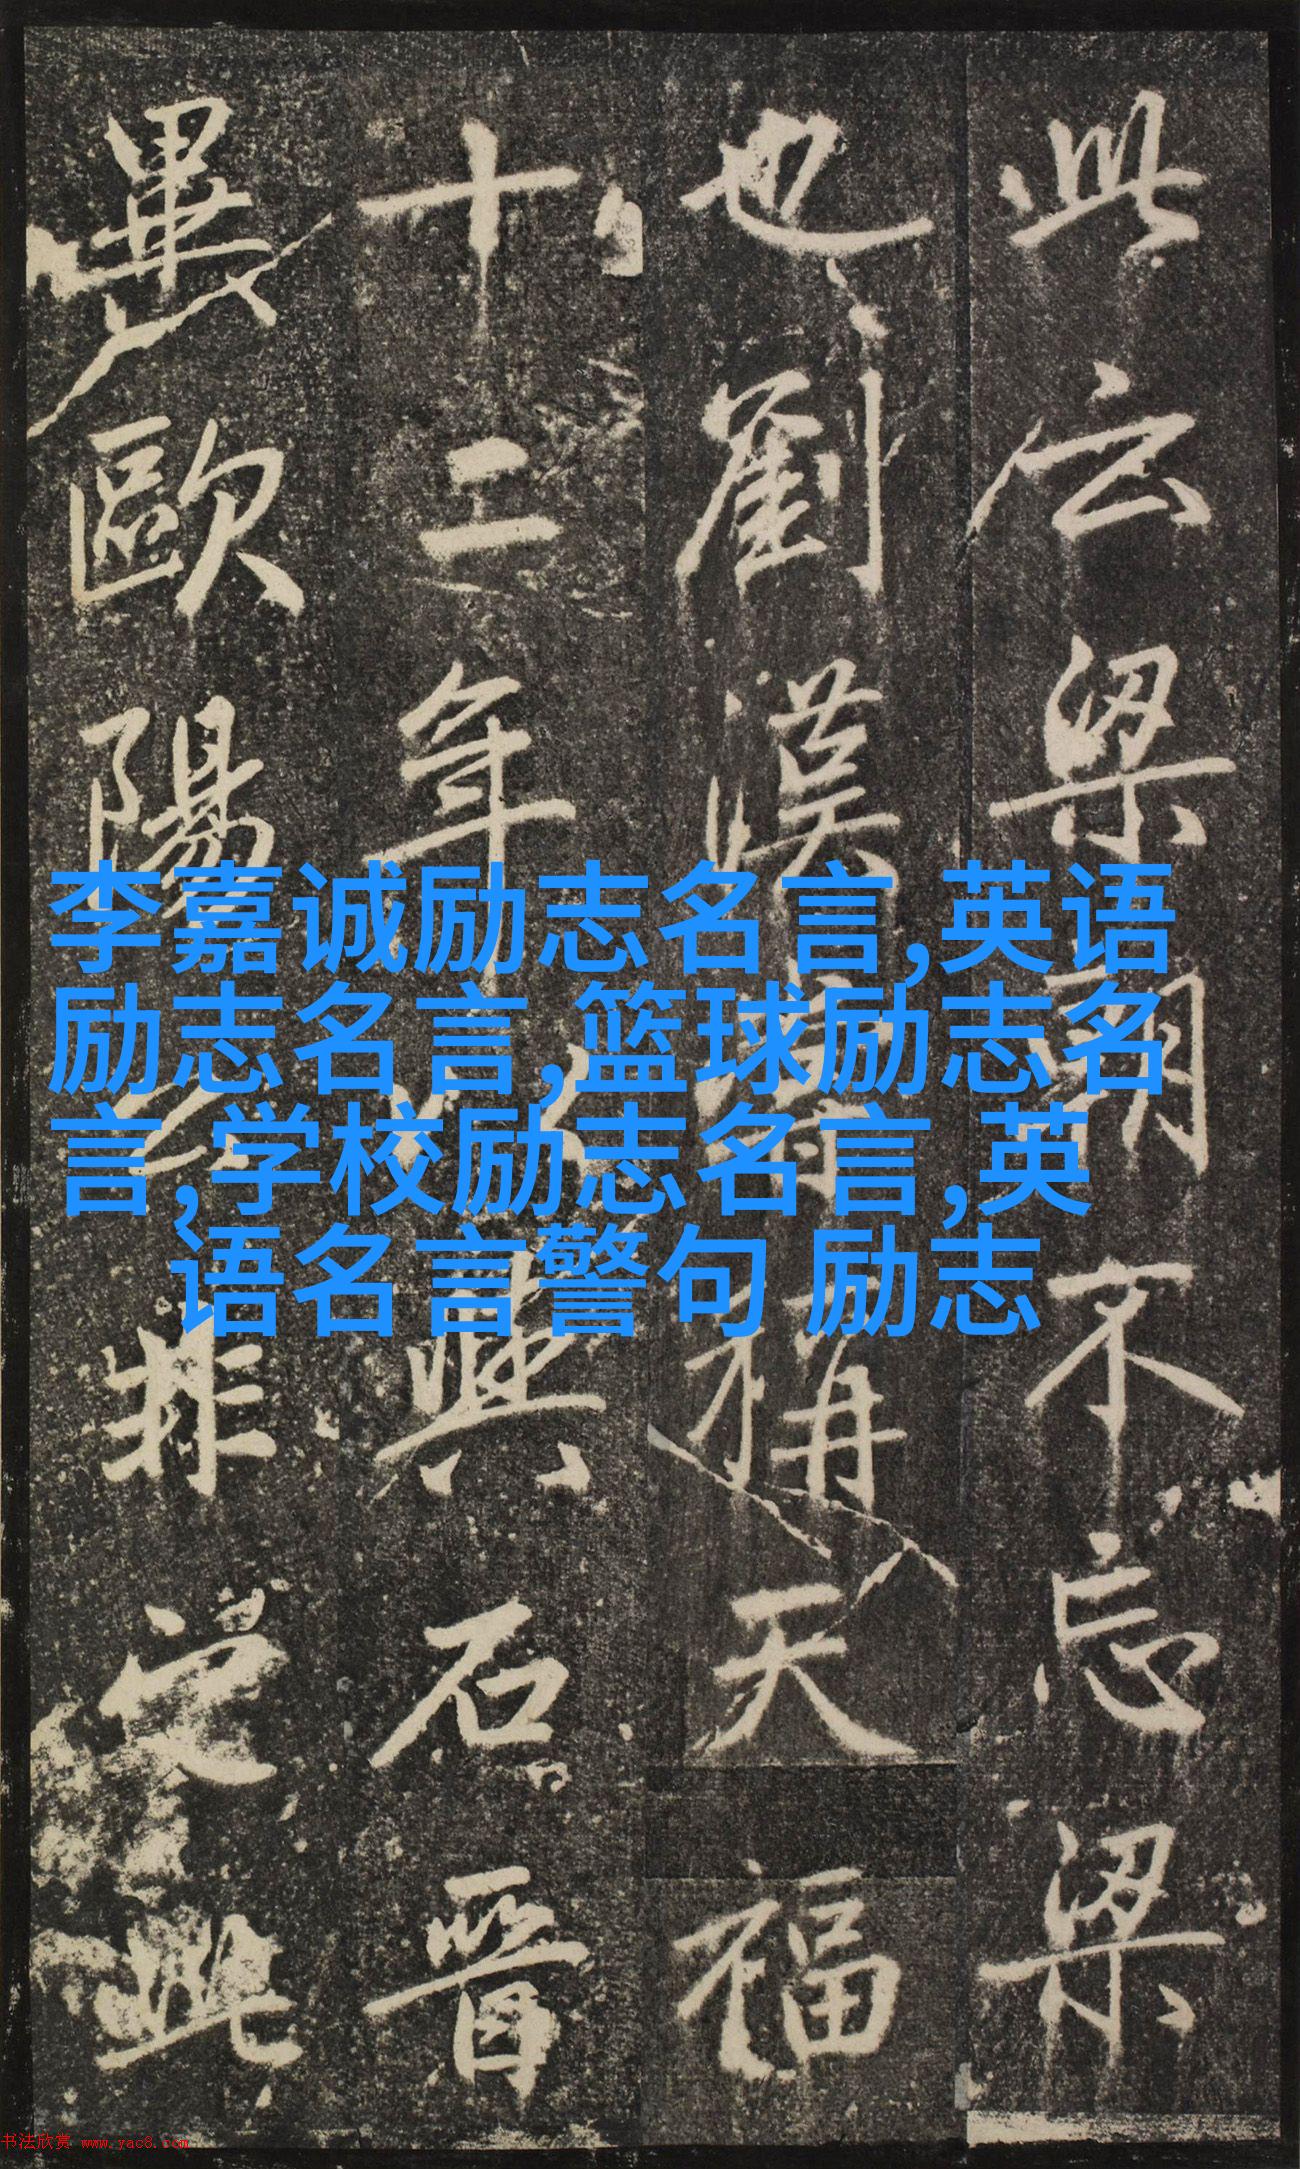 此云梁朝不忘梁
也劉漢稱天福
十二年與石晉
畢歐陽非此
李嘉诚励志名言,英语
励志名言,篮球励志名
言,学校励志名言,英
语名言警句 励志
书法欣赏 www.yac8.com